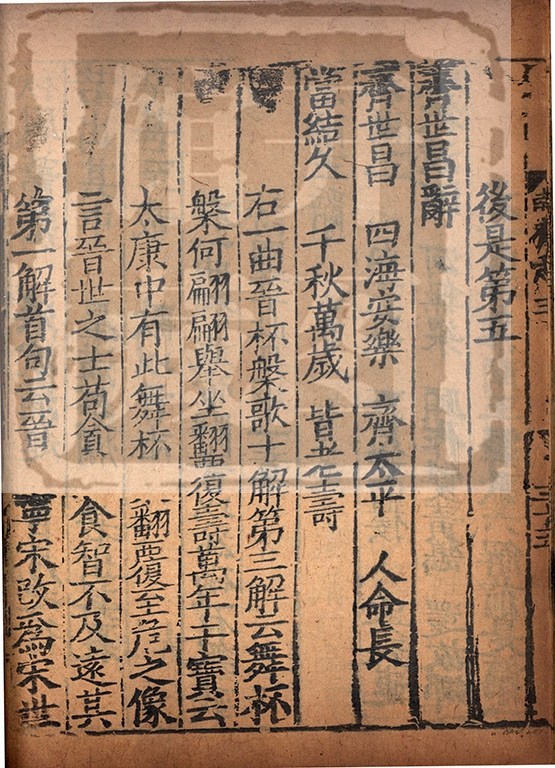 後是第五
齊世昌辭
齊世昌 四海安樂 齊太平 人命長
當結久 千秋萬歲 皆老壽
右一曲晉杯槃歌十解第三解云舞杯
槃何翩翩舉坐翻覆壽萬年干寶云
太康中有此舞杯 翻覆至危之像
言晉世之士苟貪 食智不及遠其
第一解首句云晉 寧宋改爲宋世